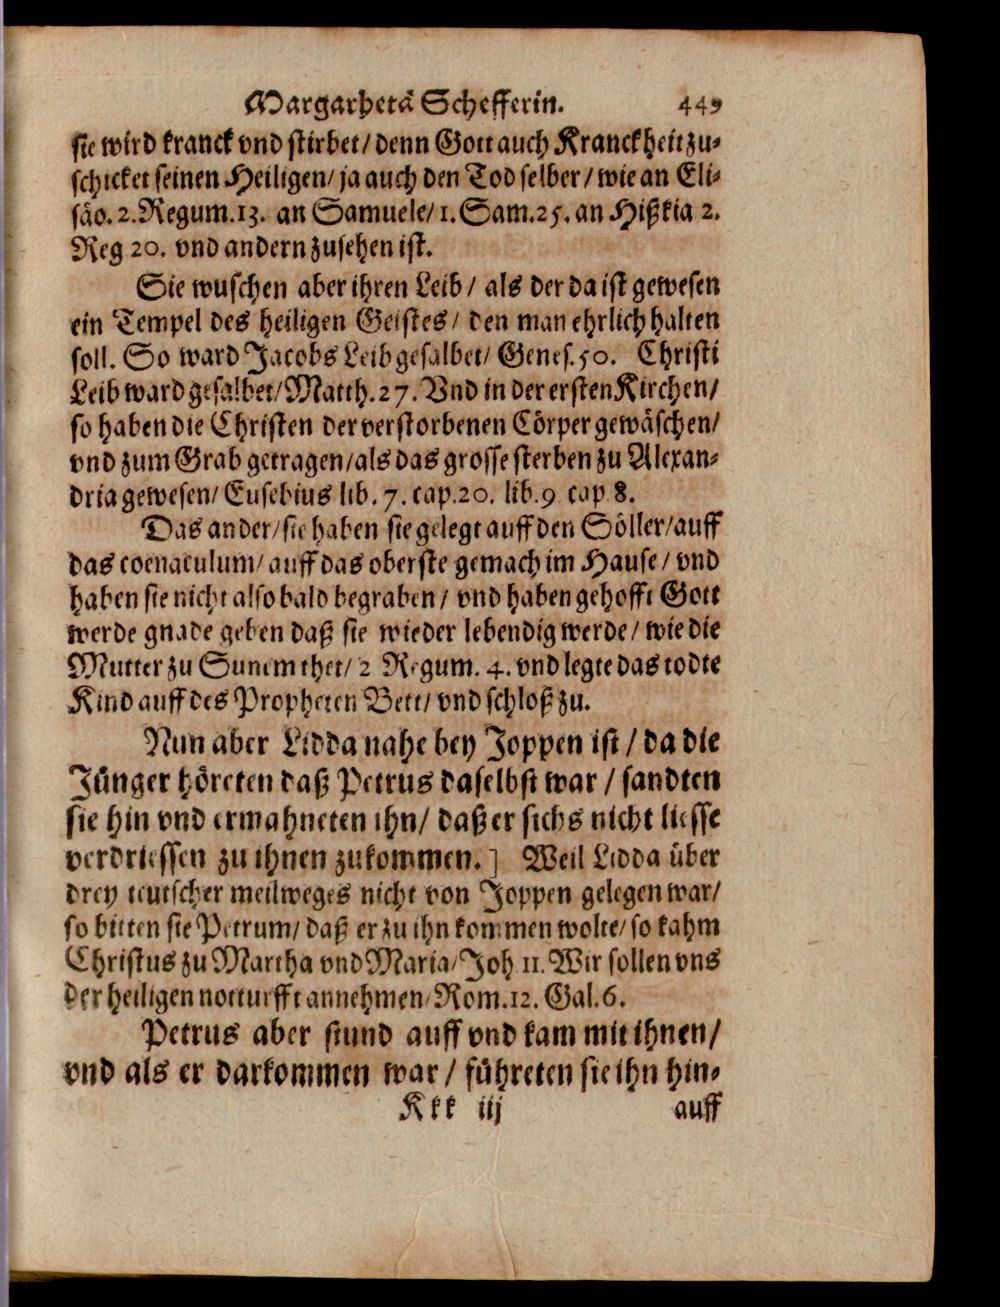 Margarhetä Schefferin. 449
sie wird kranck vnd stirbet/ denn Gott auch Kranckheit zu-
schicket seinen Heiligen/ ja auch den Tod selber/ wie an Eli-
säo. 2. Regum. 13. an Samuele/ 1. Sam. 25. an Hißkia 2.
Reg 20. vnd andern zusehen ist.
Sie wuschen aber ihren Leib/ als der da ist gewesen
ein Tempel des heiligen Geistes/ den man ehrlich halten
soll. So ward Jacobs Leib gesalbet/ Genes. 50. Christi
Leib ward gesalbet/ Matth. 27. Vnd in der ersten Kirchen/
so haben die Christen der verstorbenen Cörper gewäschen/
vnd zum Grab getragen/ als das grosse sterben zu Alexan-
dria gewesen/ Eusebius lib. 7. cap. 20. lib. 9 cap 8.
Das ander/ sie haben sie gelegt auff den Söller/ auff
das coenaculum/ auff das oberste gemach im Hause/ vnd
haben sie nicht also bald begraben/ vnd haben gehofft Gott
werde gnade geben daß sie wieder lebendig werde/ wie die
Mutter zu Sunem thet/ 2 Regum. 4. vnd legte das todte
Kind auff des Propheten Bett/ vnd schloß zu.
Nun aber Lidda nahe bey Joppen ist/ da die
Jünger höreten daß Petrus daselbst war/ sandten
sie hin vnd ermahneten ihn/ daß er sichs nicht liesse
verdriessen zu ihnen zukommen.] Weil Lidda über
drey teutscher meilweges nicht von Joppen gelegen war/
so bitten sie Petrum/ daß er zu ihn kommen wolte/ so kahm
Christus zu Martha vnd Maria/ Joh 11. Wir sollen vns
der heiligen notturfft annehmen/ Rom. 12. Gal. 6.
Petrus aber stund auff vnd kam mit ihnen/
vnd als er darkommen war/ führeten sie ihn hin-
Kkk iij auff